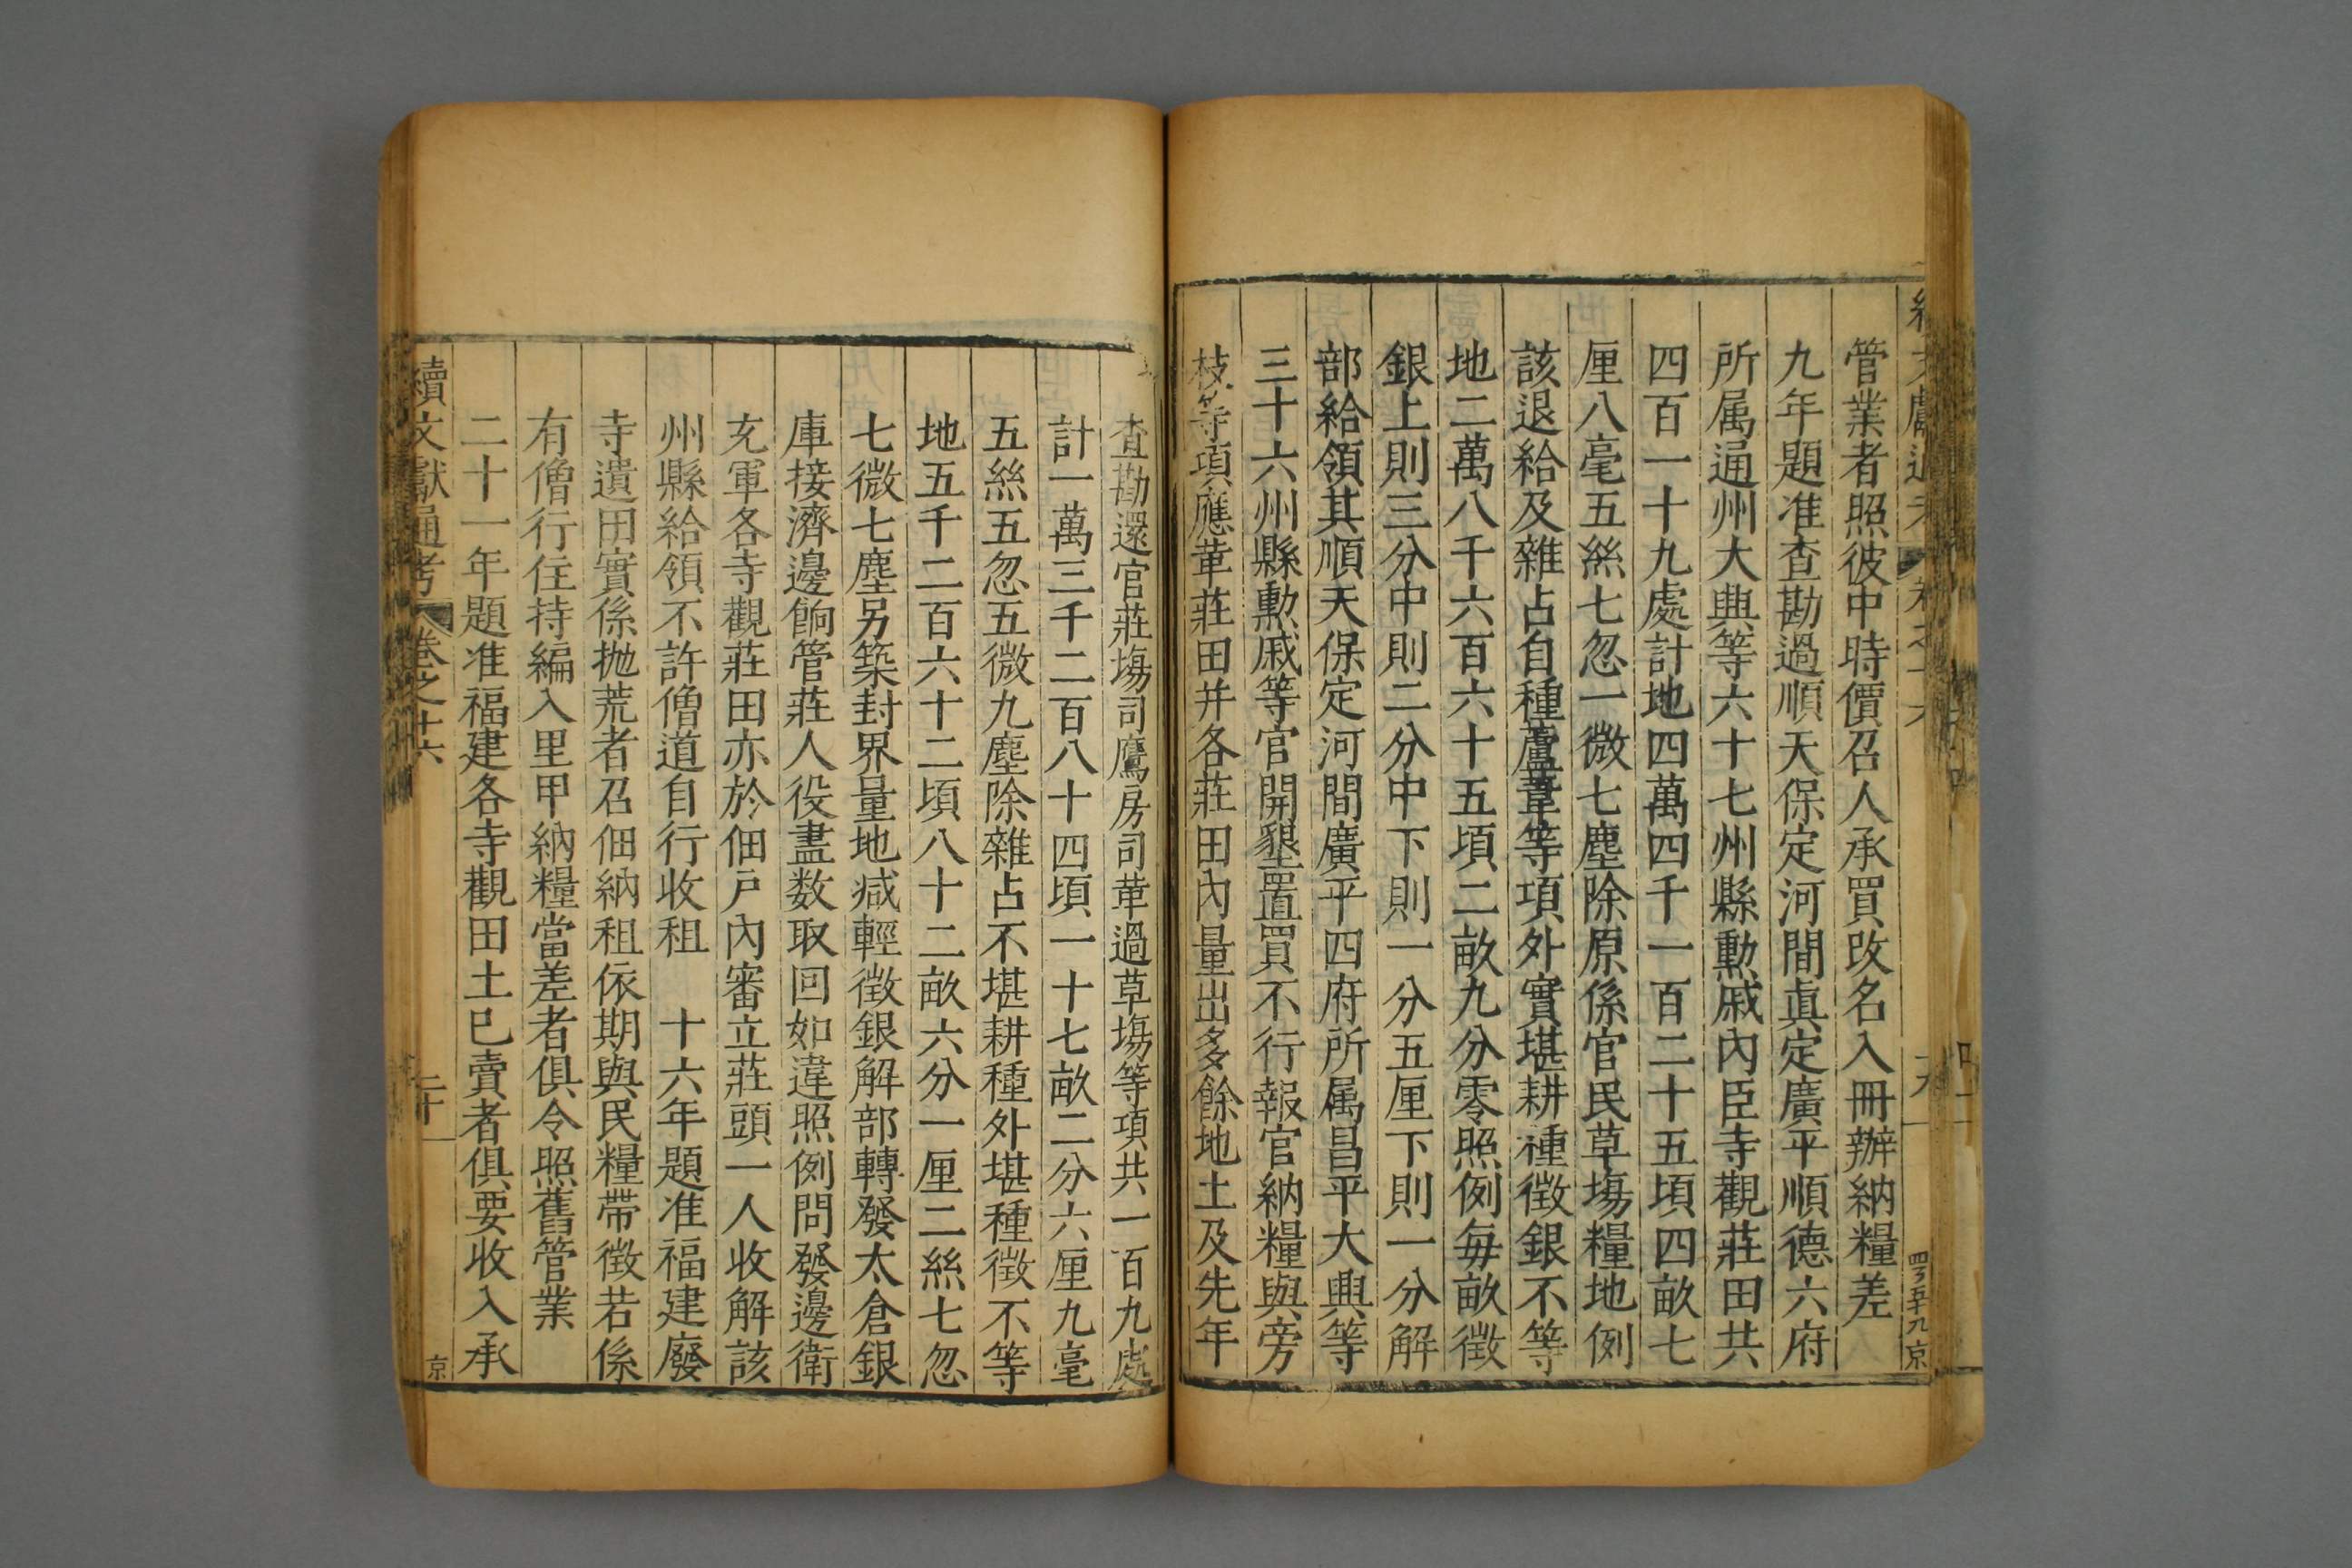 管業者照彼中時價召人承買改名入冊辦納糧差
九年題准查勘過順天保定河間眞定廣平順德六府
所属通州大興等六十七州縣勲戚內臣寺觀莊田共
四百一十九處計地四萬四千一百二十五頃四畝七
厘八毫五絲七忽一微七塵除原係官民草塲糧地例
該退給及雜占自種蘆葦等項外實堪耕種徵銀不等
地二萬八千六百六十五頃二畝九分零照例每畝徵
銀上則三分中則二分中下則一分五厘下則一分解
部給領其順天保定河間廣平四府所属昌平大興等
三十六州縣勲戚等官開墾置買不行報官納糧與旁
枝等項應革莊田并各莊田內量出多餘地土及先年
查勘還官莊塲司鷹房司革過草塲等項共一百九處
計一萬三千二百八十四頃一十七畝二分六厘九毫
五絲五忽五微九塵除雜占不堪耕種外堪種徵不等
地五千二百六十二頃八十二畝六分一厘二絲七忽
七微七塵另築封界量地减輕徵銀解部轉發太倉銀
庫接濟邊餉管莊人役盡数取回如違照例問發邊衛
充軍各寺觀莊田亦於佃戶內審立莊頭一人收解該
州縣給領不許僧道自行收租 十六年題准福建廢
寺遺田實係拋荒者召佃納租依期與民糧帶徵若係
有僧行住持編入里甲納糧當差者俱令照舊管業
二十一年題准福建各寺觀田土已賣者俱要收入承
續文獻通考 卷之十六 二十 京